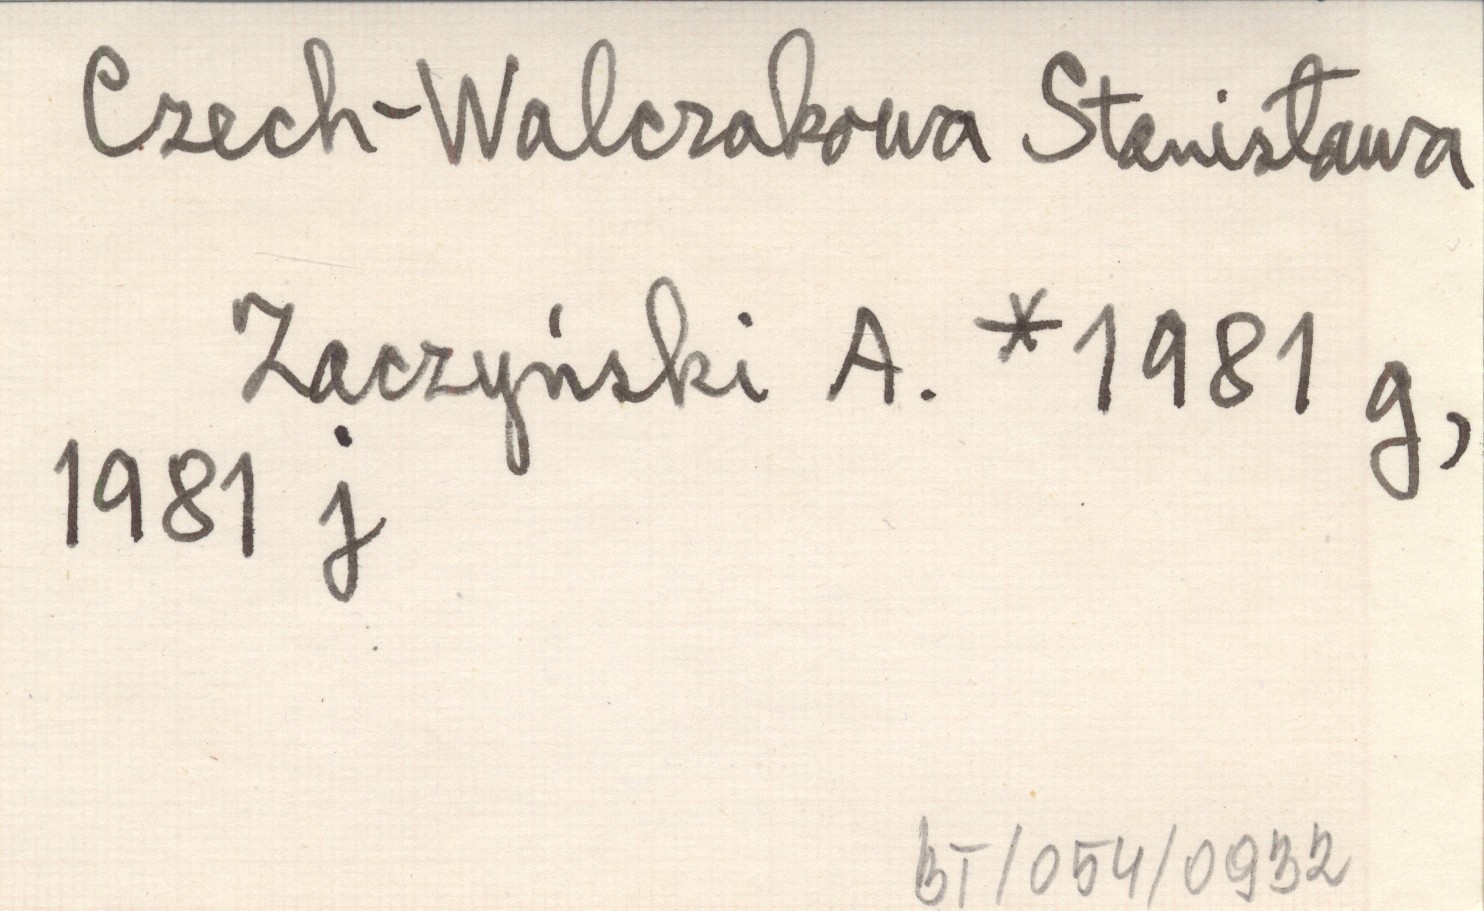 Czech-Walczakowa Stanisława
Zaczyński A. *1981 g,
1981 j
BT/054/0932